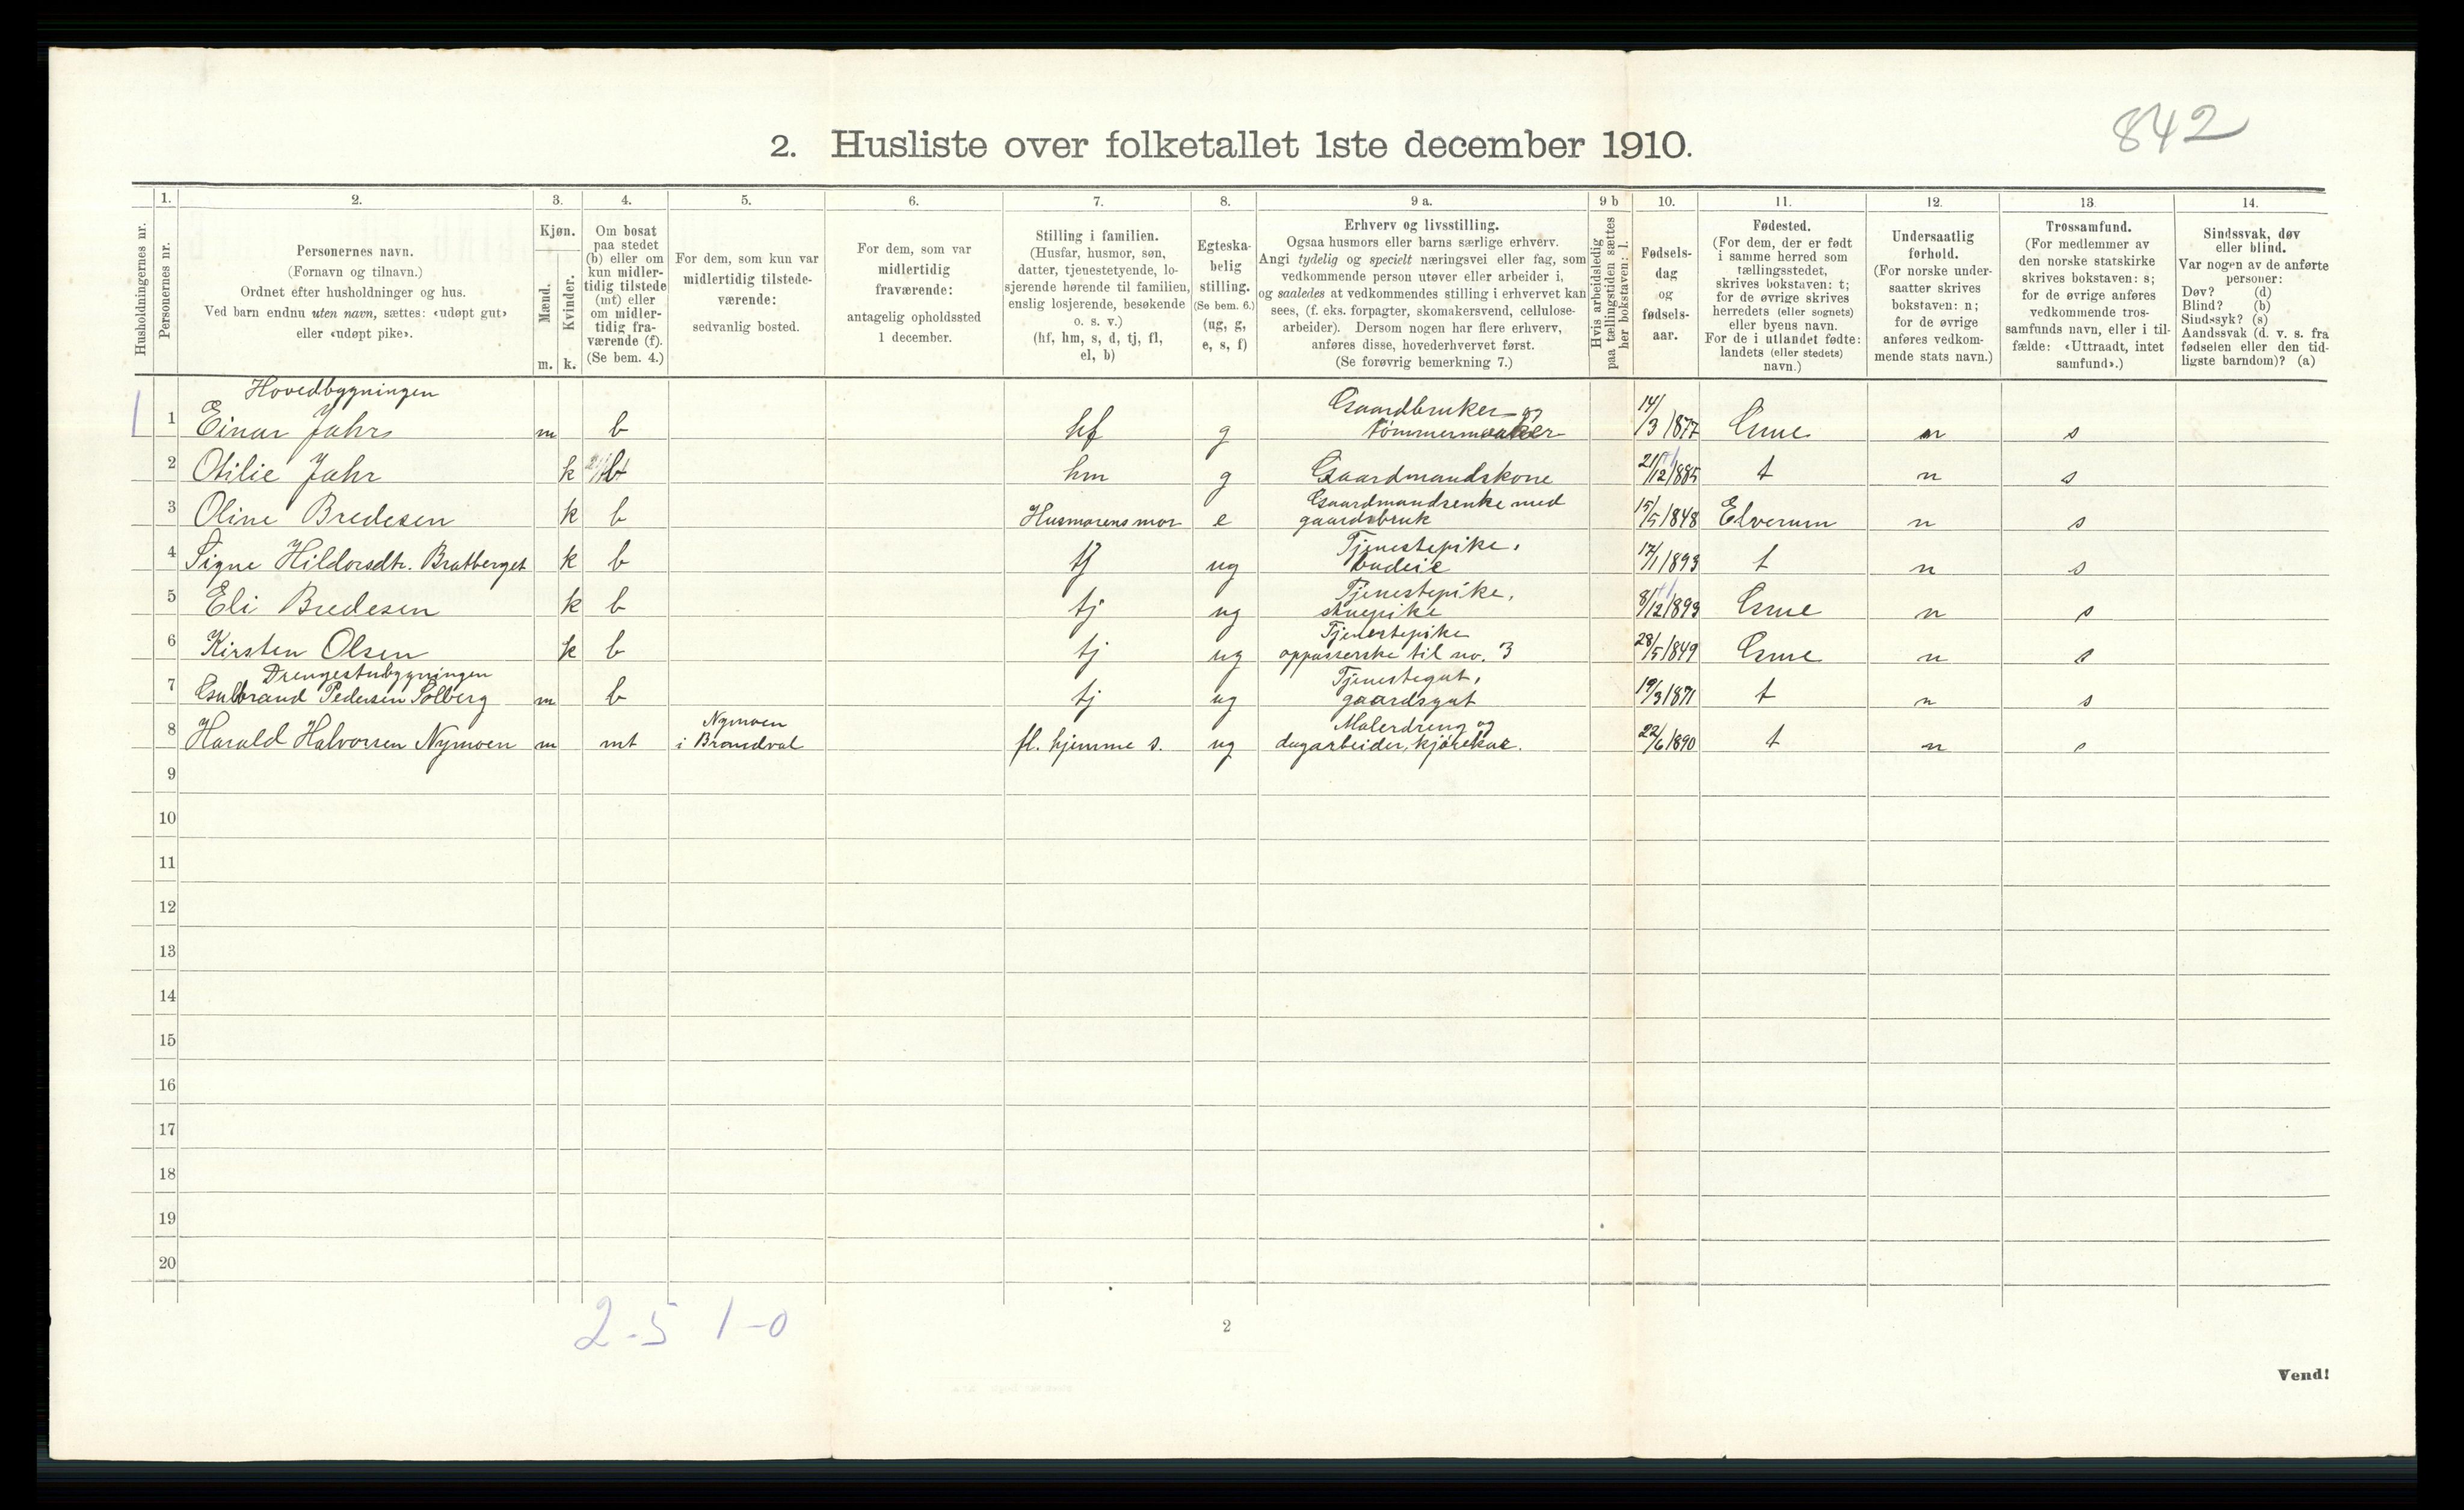 842
2. Husliste over folketallet 1ste december 1910.
Husholdningernes nr.
1.
Personernes nr.
2.
Personernes navn.
(Fornavn og tilnavn.)
Ordnet efter husholdninger og hus.
Ved barn endnu uten navn, sættes: «udøpt gut»
eller «udøpt pike».
3.
Kjøn.
Mænd.
Kvinder.
m. k.
4.
Om bosat
paa stedet
(b) eller om
kun midler-
tidig tilstede
(mt) eller
om midler-
tidig fra-
værende (f).
(Se bem. 4.)
5.
For dem, som kun var
midlertidig tilstede-
værende:
sedvanlig bosted.
6.
For dem, som var
midlertidig
fraværende:
antagelig opholdssted
1 december.
7.
Stilling i familien.
(Husfar, husmor, søn,
datter, tjenestetyende, lo-
sjerende hørende til familien,
enslig losjerende, besøkende
o. s. v.)
(hf, hm, s, d, tj, fl,
el, b)
8.
Egteska-
belig
stilling.
(Se bem. 6.)
(ug, g,
e, s, f)
9 a.
Erhverv og livsstilling.
Ogsaa husmors eller barns særlige erhverv.
Angi tydelig og specielt næringsvei eller fag, som
vedkommende person utøver eller arbeider i,
og saaledes at vedkommendes stilling i erhvervet kan
sees, (f. eks. forpagter, skomakersvend, cellulose-
arbeider). Dersom nogen har flere erhverv,
anføres disse, hovederhvervet først.
(Se forøvrig bemerkning 7.)
9 b
Hvis arbeidsledig
paa tællingstiden sættes
her bokstaven: l.
10.
Fødsels-
dag
og
fødsels-
aar.
11.
Fødested.
(For dem, der er født
i samme herred som
tællingsstedet,
skrives bokstaven: t;
for de øvrige skrives
herredets (eller sognets)
eller byens navn.
For de i utlandet fødte:
landets (eller stedets)
navn.)
12.
Undersaatlig
forhold.
(For norske under-
saatter skrives
bokstaven: n;
for de øvrige
anføres vedkom-
mende stats navn.)
13.
Trossamfund.
(For medlemmer av
den norske statskirke
skrives bokstaven: s;
for de øvrige anføres
vedkommende tros-
samfunds navn, eller i til-
fælde: «Uttraadt, intet
samfund».)
14.
Sindssvak, døv
eller blind.
Var nogen av de anførte
personer:
Døv? (d)
Blind? (b)
Sindssyk? (s)
Aandssvak (d. v. s. fra
fødselen eller den tid-
ligste barndom)? (a)
Hovedbygningen
Gaardbruker og
1 Einar Jahr m b hf g 14/3 1877 Grue n s
2 Otilie Jahr k hm g Gaardmandskone 21/12 1885 t n s
Gaardmandsenke med
3 Oline Bredesen k b Husmorens mor e gaardsbruk 15/5 1848 Elverum n s
Tjenestepike,
4 Signe Hildorsdtr. Bratberget k b tj ug budeie 17/1 1893 t n s
Tjenestepike,
5 Eli Bredesen k b tj ug stuepike 8/12 1893 Grue n s
Tjenestepike
6 Kirsten Olsen k b tj ug oppasserske til no. 3 28/5 1849 Grue n s
Drengestubygningen Tjenestegut,
7 Gulbrand Pedersen Solberg m b tj ug gaardsgut 19/3 1871 t n s
Nymoen Malerdreng og
8 Harald Halvorsen Nymoen m mt i Brandval fl. hjemme s. ug dagarbeider, kjørekar. 22/6 1890 t n s
9
10
11
12
13
14
15
16
17
18
19
20
2-5 1-0
2
Vend!